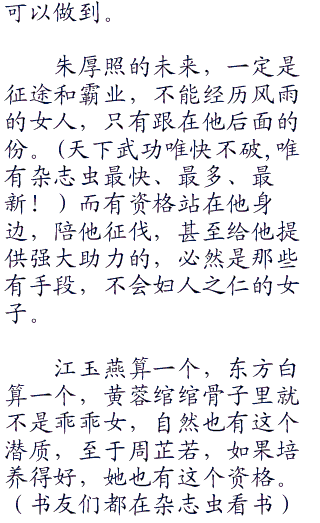 可以做到。
朱厚照的未来，一定是
征途和霸业，不能经历风雨
的女人，只有跟在他后面的
份。(天下武功唯快不破,唯
有杂志虫最快、最多、最
新！）而有资格站在他身
边，陪他征伐，甚至给他提
供强大助力的，必然是那些
有手段，不会妇人之仁的女
子。
江玉燕算一个，东方白
算一个，黄蓉绾绾骨子里就
不是乖乖女，自然也有这个
潜质，至于周芷若，如果培
养得好，她也有这个资格。
（书友们都在杂志虫看书）